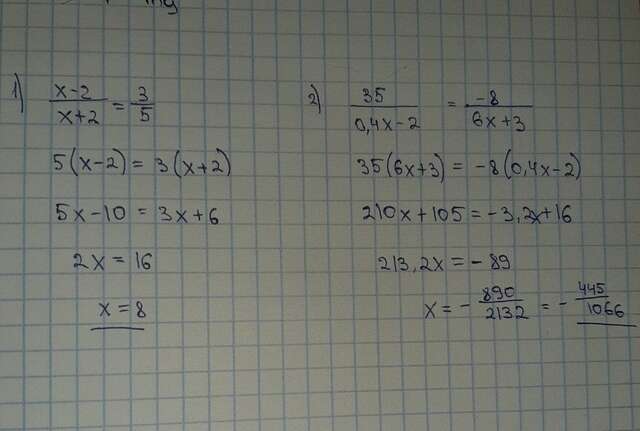 1) x-2/x+2 = 3/5
5(x-2) = 3(x+2)
5x-10 = 3x+6
2x = 16
x = 8
2) 35/0,4x-2 = -8/6x+3
35(6x+3) = -8(0,4x-2)
210x+105 = -3,2x+16
213,2x = -89
x = - 890/2132 = - 445/1066